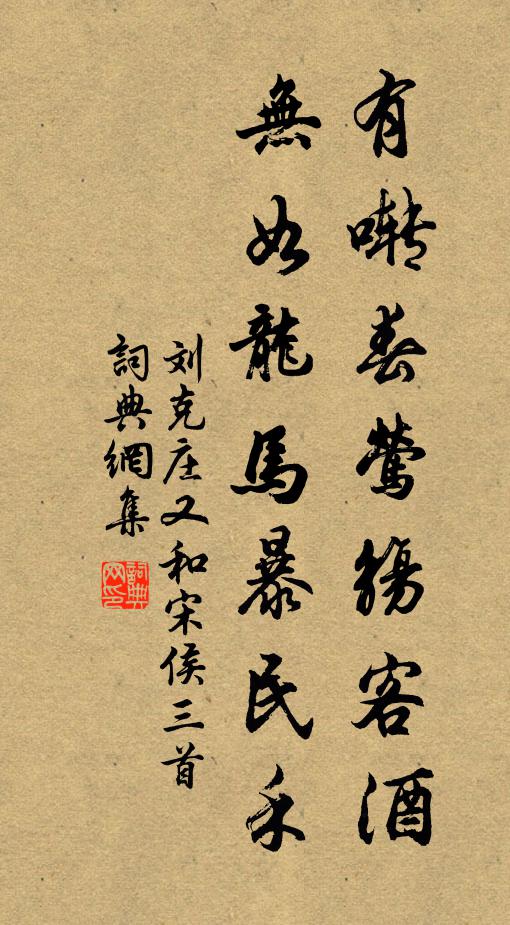 有啭春莺觞客酒
無如龍馬暴民禾
刘克庄又和宋侯三首
詞典網集